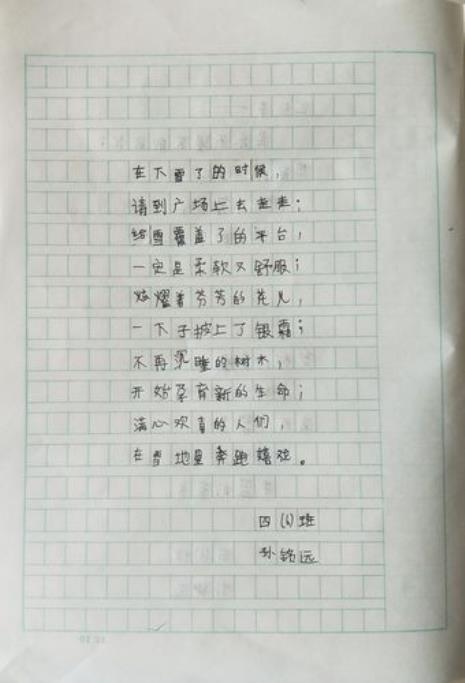 在下雪了的时候，
请到广场上去走走；
给雪覆盖了的平台，
一定是柔软又舒服；
炫耀着芬芳的花儿，
一下子披上了银霜；
不再沉睡的树木，
开始孕育新的生命；
满心欢喜的人们，
在雪地里奔跑嬉戏。
四（6）班
孙铭远